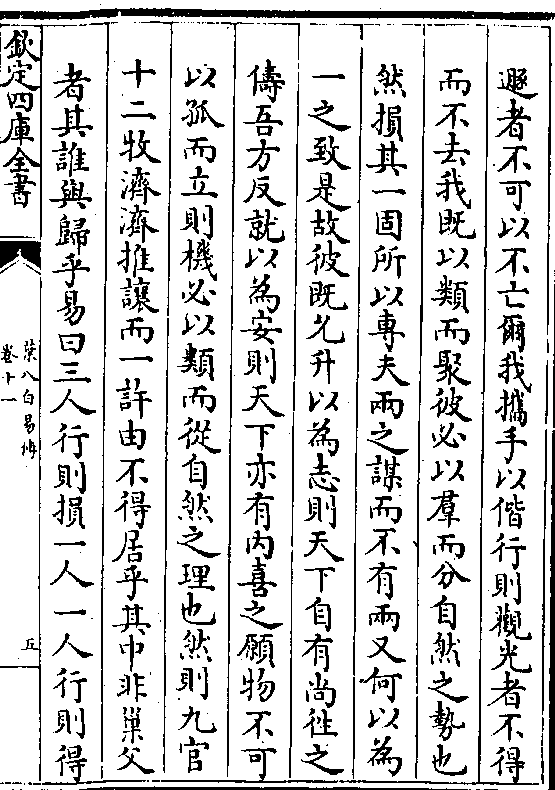 遯者不可以不亡爾我攜手以偕行則觀光者不得
而不去我既以類而聚彼必以羣而分自然之勢也
然損其一固所以專夫兩之謀而不有兩又何以為
一之致是故彼既允升以為志則天下自有尚往之
儔吾方反就以為安則天下亦有内喜之願物不可
以孤而立則機必以類而從自然之理也然則九官
十二牧濟濟推讓而一許由不得居乎其中非巢父
者其誰與歸乎易曰三人行則損一人一人行則得
欽定四庫全書
葉八白易傳
卷十一
五